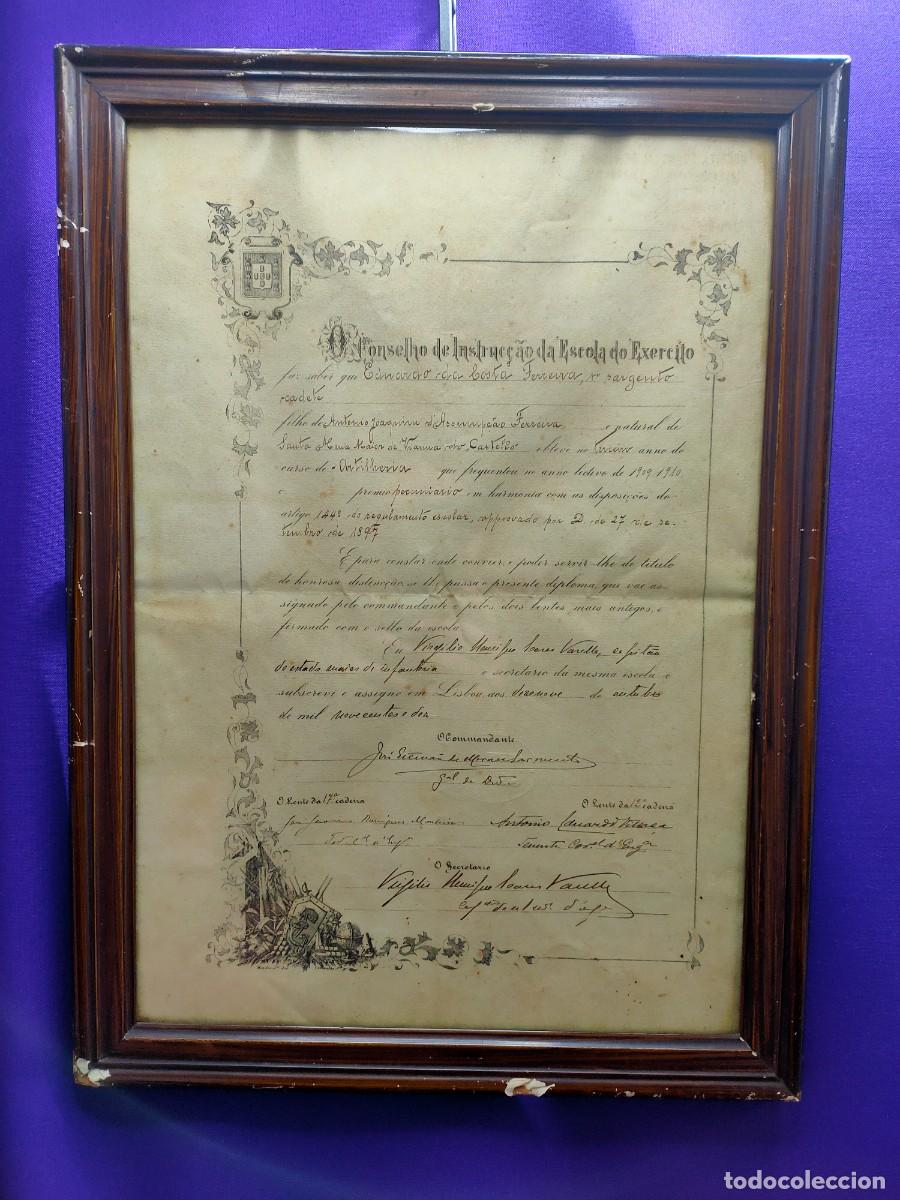 O Conselho de Instrucção da Escola do Exercito
faz saber que Eduardo da Costa Ferreira, 1º sargento
cadete
filho de Antonio Joaquim d'Assumpção Ferreira e natural de
Santa Maria Maior de Vianna do Castello obteve no terceiro anno do
curso de Artilheria que frequentou no anno lectivo de 1909-1910
o premio pecuniario em harmonia com as disposições do
artigo 144º do regulamento escolar, approvado por D. de 27 de se-
tembro de 1897
E para constar onde convier, e poder servir-lhe de titulo
de honrosa distincção, se lhe passa o presente diploma, que vae as-
signado pelo commandante e pelos dois lentes mais antigos, e
firmado com o sello da escola.
Eu Virgilio Soares Varella, capitão
do estado maior de infantaria e secretario da mesma escola o
subscrevi e assigno em Lisboa, aos dezenove de outubro
de mil novecentos e dez
O Commandante
José Estevão de Moraes Sarmento
gal de Divão
O Lente da 17ª cadeira O Lente da 12ª cadeira
Rodrigues Monteiro Antonio Eduardo Villaça
Tenente Corel d'Engª
O Secretario
Virgilio Soares Varella
todocoleccion